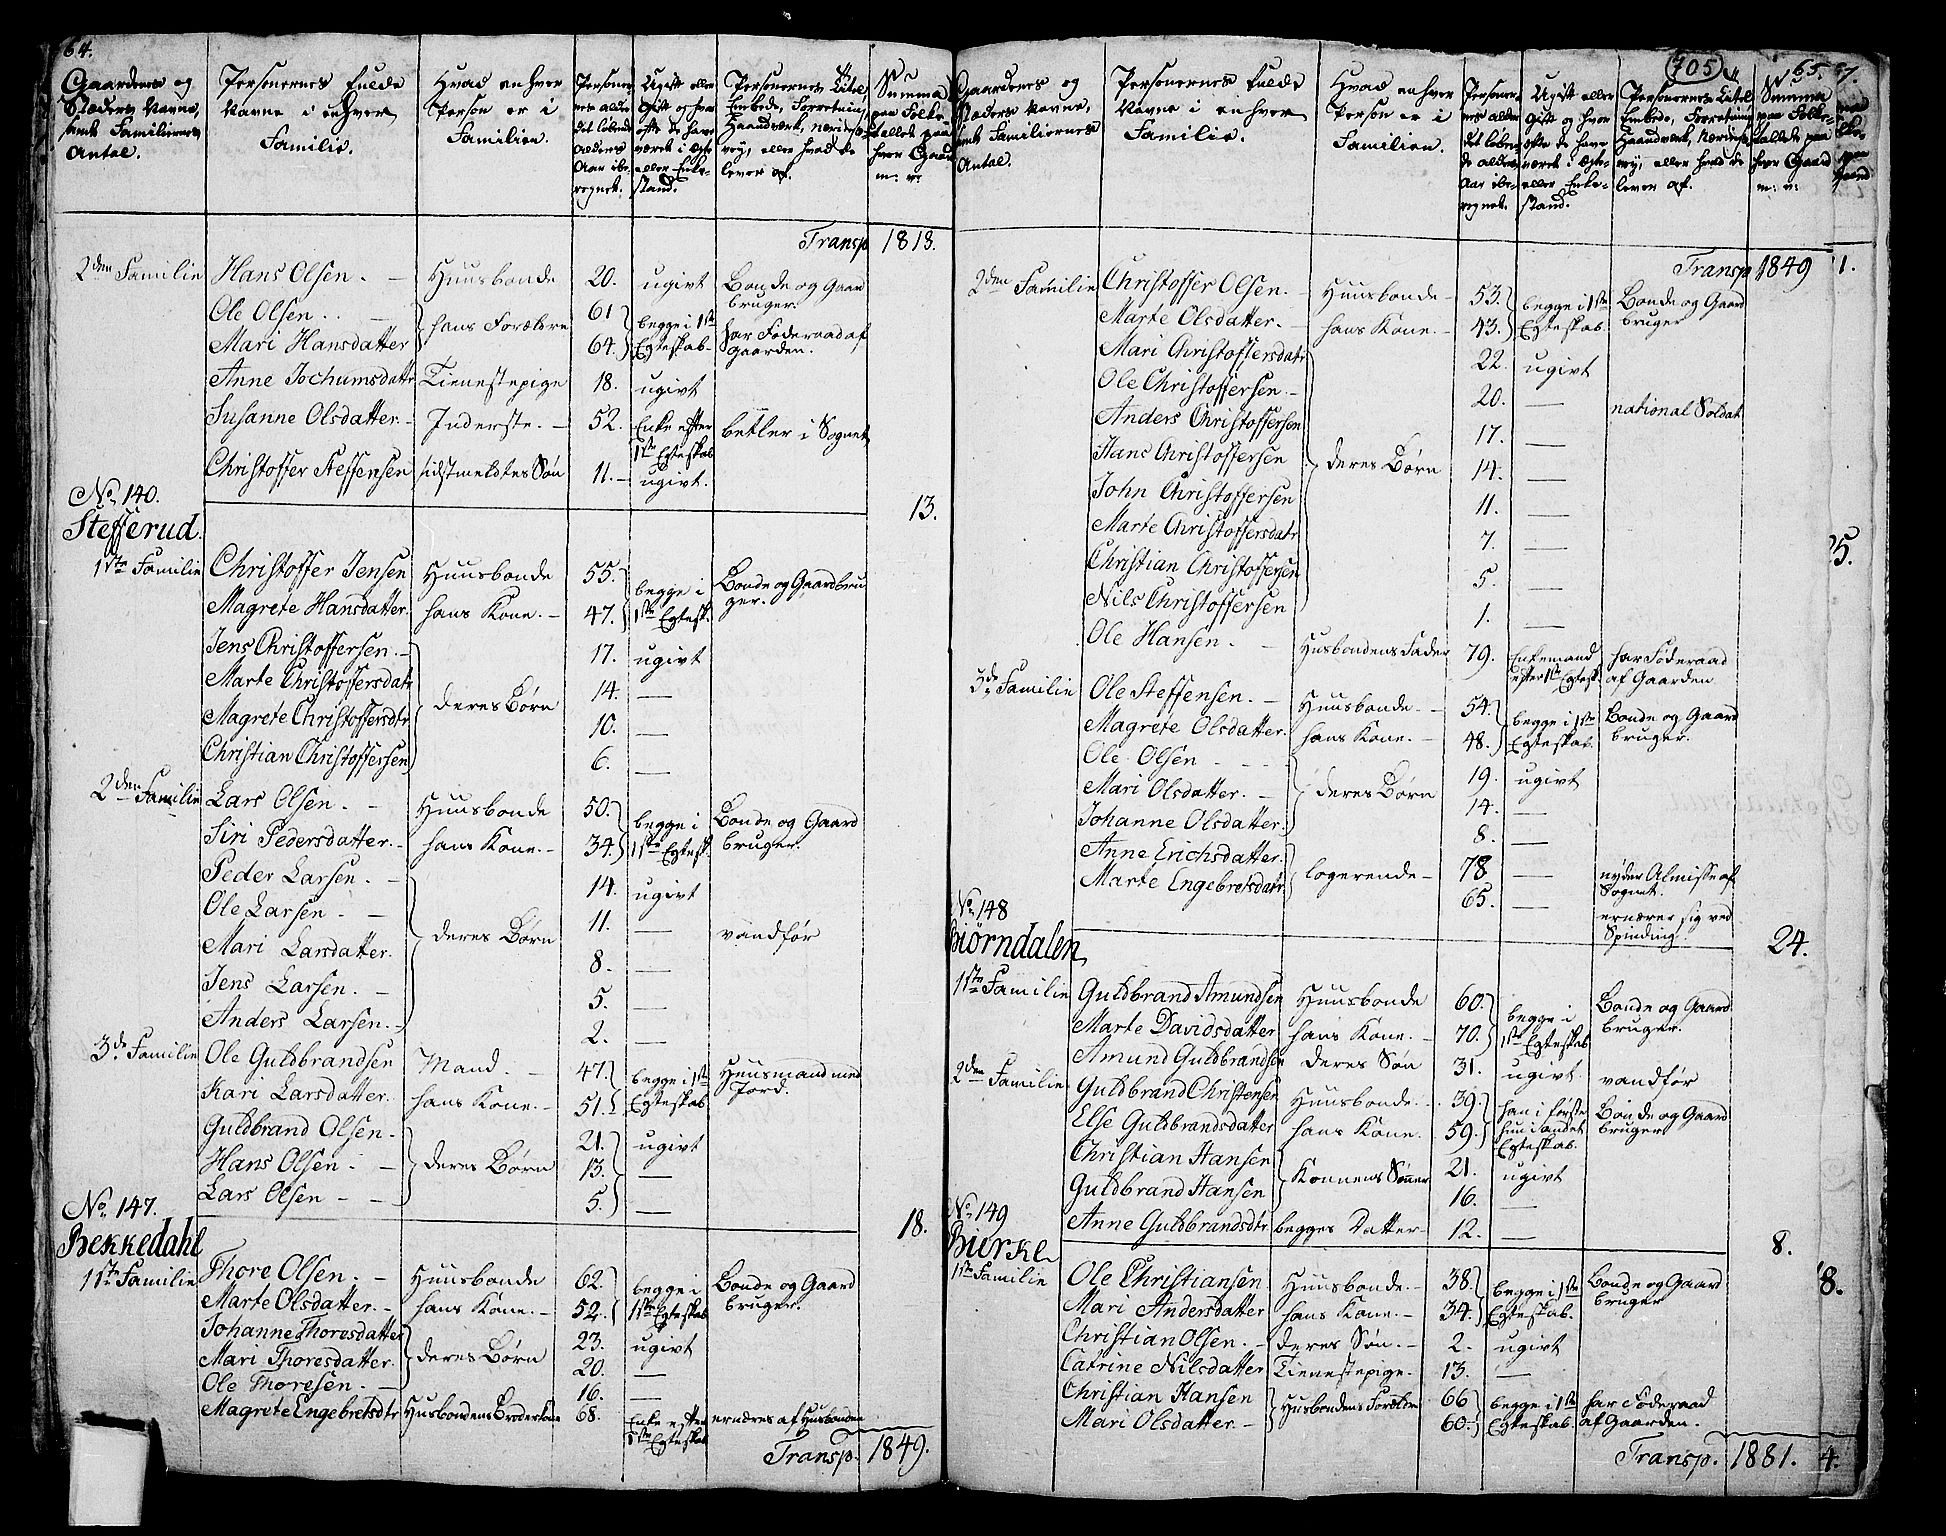 64.
Gaardenes og Stædern Navne, samt Familiernes Antal. | Personernes fulde Navne i enhver Familie. | Hvad enhver Person er i Familien. | Personernes alder det løbende Alders Aar iberegnet. | Ugift eller Gift og hvor ofte de have været i Ægte- eller Enkestand. | Personernes Titel Embede, Forretning, Haandværk, Næringsvej, eller hvad de lever af. | Summa paa Folketallet paa hver Gaard m: v:
Transp 1813.
2den Familie | Hans Olsen. | Huusbonde | 20. | ugivt | Bonde og Gaardbruger.
Ole Olsen | hans Forældre | 61 | begge i 1ste Egteskab | har Föderaad af gaarden.
Mari Hansdatter | 64.
Anne Jochumsdattr | Tienestepige | 18. | ugivt
Susanne Olsdatter. | Inderste. | 52. | Enke efter 1ste Egteskab | betler i Sognet
Christoffer Steffensen | sidstmeldtes Søn | 11. | ugivt.
13.
No. 140.
Stefferud.
1ste Familie | Christoffer Jensen | Huusbonde | 55. | begge i 1ste Egtesk. | Bonde og Gaardbruger.
Magrete Hansdatter. | hans Kone. | 47.
Jens Christoffersen. | deres Börn | 17. | ugivt
Marte Christoffersdatr | 14. | —
Magrete Christoffersdtr | 10. | —
Christian Christoffersen | 6. | —
2den Familie | Lars Olsen. | Huusbonde | 50. | begge i 1ste Egtesk. | Bonde og Gaardbruger.
Siri Pedersdatter. | hans Kone. | 34.
Peder Larsen. | deres Börn | 14. | ugivt
Ole Larsen | 11. | — | vandför
Mari Larsdatter. | 8. | —
Jens Larsen. | 5. | —
Anders Larsen. | 2. | —
3de Familie | Ole Guldbrandsen | Mand. | 47. | begge i 1ste Egteskab | Huusmand med Jord.
Kari Larsdatter. | hans Kone. | 51.
Guldbrand Olsen. | deres Börn | 21. | ugivt
Hans Olsen. | 13. | —
Lars Olsen | 5. | —
18.
No. 147.
Bekkedahl
1ste Familie | Thore Olsen. | Huusbonde | 62. | begge i 1ste Egteskab | Bonde og Gaardbruger.
Marte Olsdatter. | hans Kone. | 52.
Johanne Thoresdatter | deres Börn | 23. | ugivt
Mari Thoresdatter. | 20. | —
Ole Thoresen. | 16. | —
Magrete Engebretsdtr | Husbondens Broderkone | 68. | Enke efter 1ste Egteskab | ernæres af Husbonden
Transp. 1849.
705
65.
Gaardenes og Stæders Navne, samt Familiernes Antal. | Personernes fulde Navne i enhver Familie. | Hvad enhver Person er i Familien. | Personernes alder det løbende alders Aar iberegnet. | Ugift eller Gift og hvor ofte de have været i Ægte- eller Enkestand. | Personernes Titel Embede, Forretning, Haandværk, Næringsvej, eller hvad de lever af. | Summa paa Folketallet paa hver Gaard m: v:
Transp 1849
2den Familie | Christoffer Olsen. | Huusbonde | 53. | begge i 1ste Egteskab | Bonde og Gaardbruger
Marte Olsdatter. | hans Kone. | 43.
Mari Christoffersdatr | deres Börn | 22. | ugivt
Ole Christoffersen | 20. | — | national Soldat
Anders Christoffersen | 17. | —
Hans Christoffersen | 14. | —
John Christoffersen | 11. | —
Marte Christoffersdatr | 7. | —
Christian Christoffersen | 5. | —
Nils Christoffersen | 1. | —
Ole Hansen. | Husbondens Fader | 79. | Enkemand efter 1ste Egtesk. | har Föderaad af Gaarden
3de Familie | Ole Steffensen. | Huusbonde. | 54. | begge i 1ste Egteskab. | Bonde og Gaardbruger.
Magrete Olsdatter. | hans Kone. | 48.
Ole Olsen | deres Börn | 19. | ugivt
Mari Olsdatter. | 14. | —
Johanne Olsdatter. | 8. | —
Anne Erichsdatter. | logerende | 78 | — | nyder Almisse af Sognet.
Marte Engebretsdatr. | 65. | — | ernærer sig ved Spinding.
24.
No. 148
Biörndalen
1ste Familie | Guldbrand Amundsen | Huusbonde | 60. | begge i 1ste Egteskab | Bonde og Gaardbruger.
Marte Davidsdatter | hans Kone. | 70.
Amund Guldbrandsen | deres Sön | 31. | ugivt. | vandför
2den Familie | Guldbrand Christensen | Huusbonde. | 39. | han i förste hun i andet Egteskab. | Bonde og Gaardbruger
Else Guldbrandsdatter | hans Kone. | 59.
Christian Hansen | Konnens Sönner | 21. | ugivt
Guldbrand Hansen | 16. | —
Anne Guldbrandsdtr | begges Datter | 12. | —
8.
No. 149
Bierke
1ste Familie | Ole Christiansen | Huusbonde. | 38. | begge i 1ste Egteskab. | Bonde og Gaardbruger
Mari Andersdatter | hans Kone. | 34.
Christian Olsen. | deres Sön. | 2. | ugivt
Catrine Nilsdatter | Tienestepige. | 13. | —
Christian Hansen | Husbondens Forældre | 66 | begge i 1ste Egteskab. | har Föderaad af Gaarden.
Mari Olsdatter. | 60.
Transp. 1881.